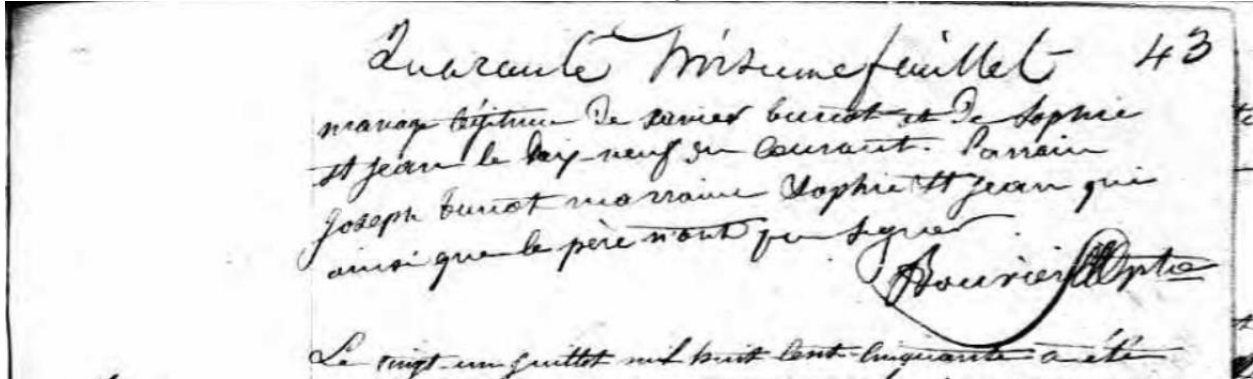 Quarante troisieme feuillet 43
mariage légitime de xavier buriot et de Sophie
St jean le dix-neuf du Courant. Parrain
joseph buriot marraine Sophie St jean qui
ainsi que le père n'ont pu signer
Le vingt-un juillet mil huit cent cinquante a été